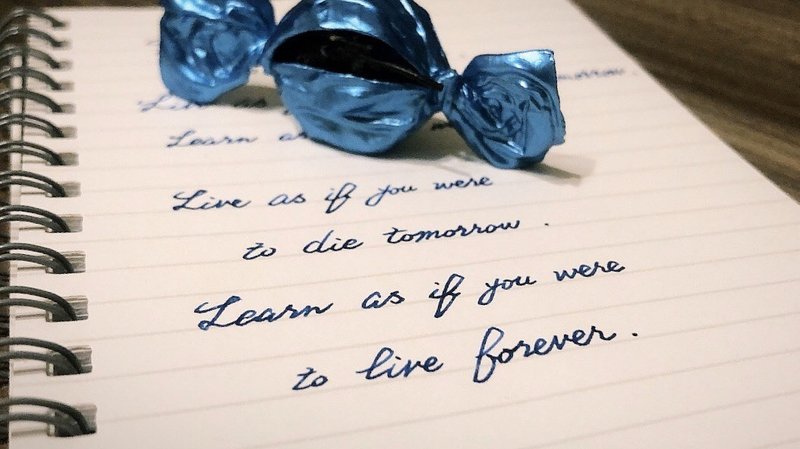 Li
tomorrow.
Learn
Live as if you were
to die tomorrow .
Learn as if you were
to live forever .